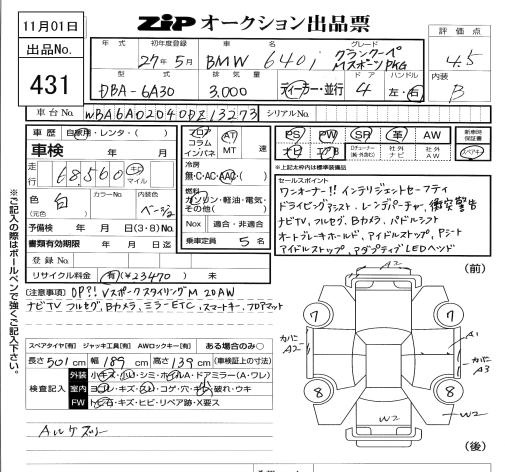 11月01日
ZiP オークション出品票
出品No.
431
年式 初年度登録 車名 グレード
27年5月 BMW 640i グランクーペ Mスポーツ PKG
型式 排気量 ドア ハンドル
DBA-6A30 3,000 ディーラー・並行 4 左・右
評価点
4.5
内装
B
車台No. WBA6A02040DZ13273 シリアルNo.
車歴 自家用・レンタ・( )
車検 年 月
走行 68,560 km マイル
色 (元色) 白 カラーNo. 内装色 ベージュ
予備検 年 月 日(3・8)No.
書類有効期限 年 月 日迄
登録No.
リサイクル料金 有(¥23470 )
フロア コラム インパネ AT MT 速
冷房
無・C・AC・AAC・( )
燃料
ガソリン・軽油・電気・その他( )
Nox 適合・非適合
乗車定員 5名
標準装備
PS PW SR 革 AW
ナビ エアB Dチューナー(純・外含む) 社外ナビ 社外AW
新車時保証書
※上記太枠内は標準装備品
セールスポイント
ワンオーナー!! インテリジェントセーフティ
ドライビングアシスト、レーンデパーチャー、衝突警告
ナビTV、フルセグ、Bカメラ、パドルシフト
オートブレーキホールド、アイドルストップ、Pシート
アイドルストップ、アダプティブLEDヘッド
[注意事項] OP?! Vスポークスタイリング M 20AW
ナビTV フルセグ、Bカメラ、ミラーETC、スマートキー、フロアマット
スペアタイヤ[有] ジャッキ工具[有] AWロックキー[有] ある場合のみ○
長さ 501cm 幅 189cm 高さ 139cm (車検証上の寸法)
検査記入
外装 小キズ・小凹・シミ・ホイルA・ドアミラー(A・ワレ)
室内 ヨゴレ・キズ・スレ・コゲ・穴・破れ・ウキ
FW トビ石・キズ・ヒビ・リペア跡・X要ス
※ご記入の際はボールペンで強くご記入下さい。
(前)
A2
7 7
カバー A2
A1
カバー A3
8 8
W2
W2
(後)